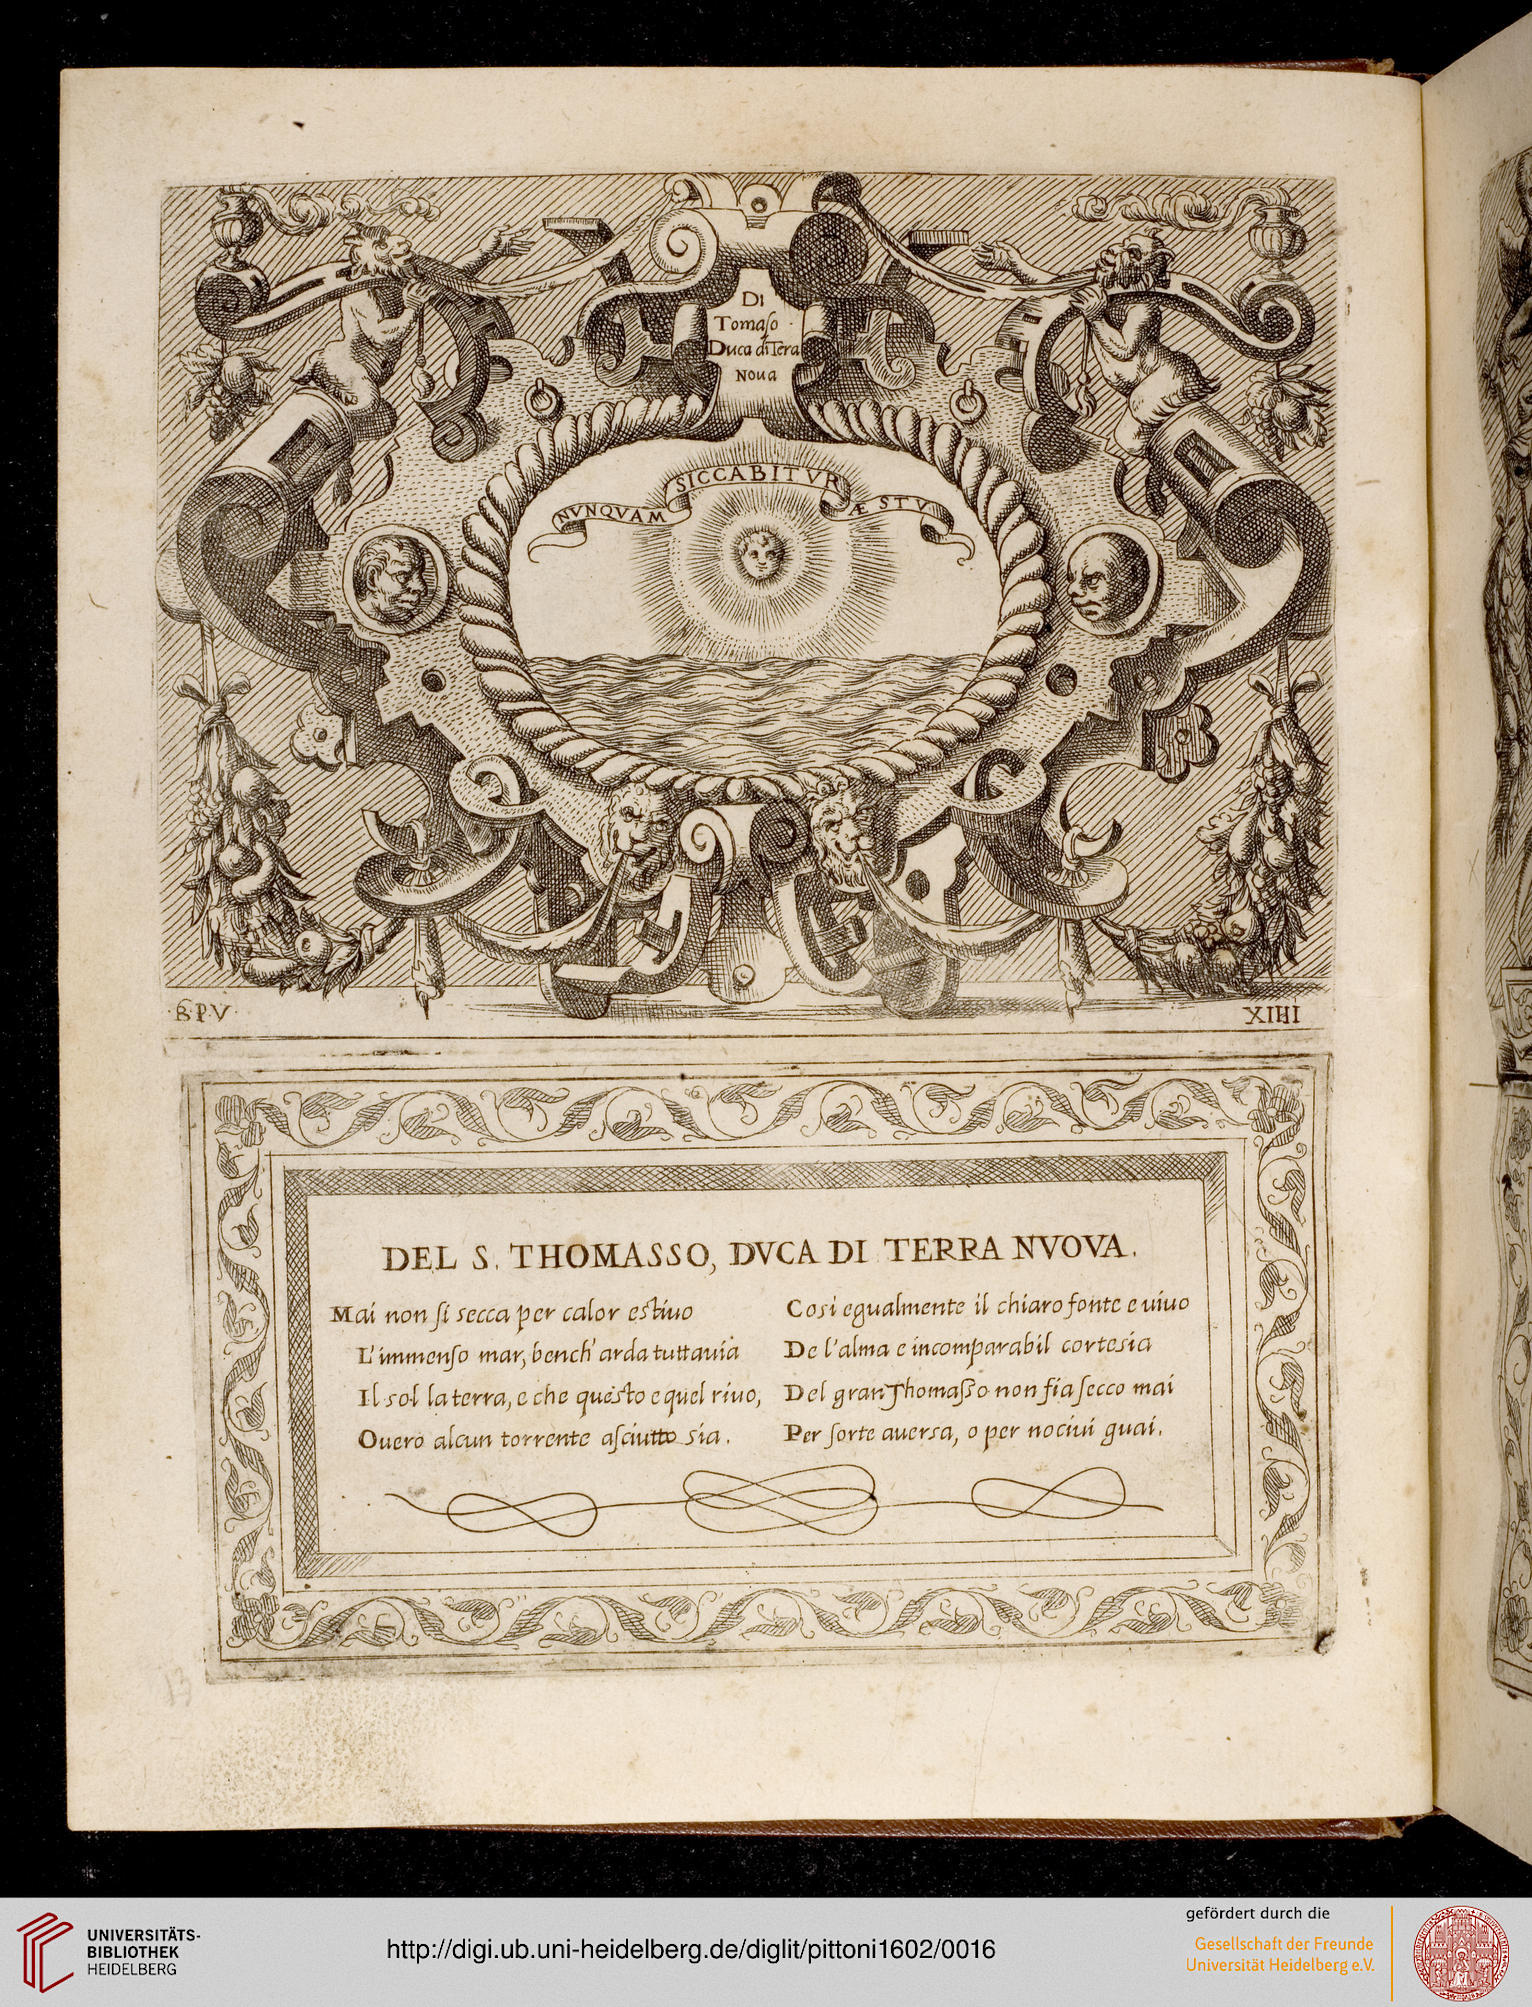 DI
Tomaſo
Duca di Tera
Noua
NVNQVAM SICCABITVR ÆSTV
B.P.V.
XIIII
DEL S. THOMASSO, DVCA DI TERRA NVOVA.
Mai non ſi secca per calor estiuo
L'immenſo mar, bench' arda tuttauia
Il sol la terra, e che questo e quel riuo,
Ouero alcun torrente aſciutto sia.
Cosi egualmente il chiaro fonte e uiuo
De l'alma e incomparabil cortesia
Del gran Thomaſso non fia ſecco mai
Per ſorte auersa, o per nociui guai.
13
UNIVERSITÄTS-
BIBLIOTHEK
HEIDELBERG
http://digi.ub.uni-heidelberg.de/diglit/pittoni1602/0016
gefördert durch die
Gesellschaft der Freunde
Universität Heidelberg e.V.